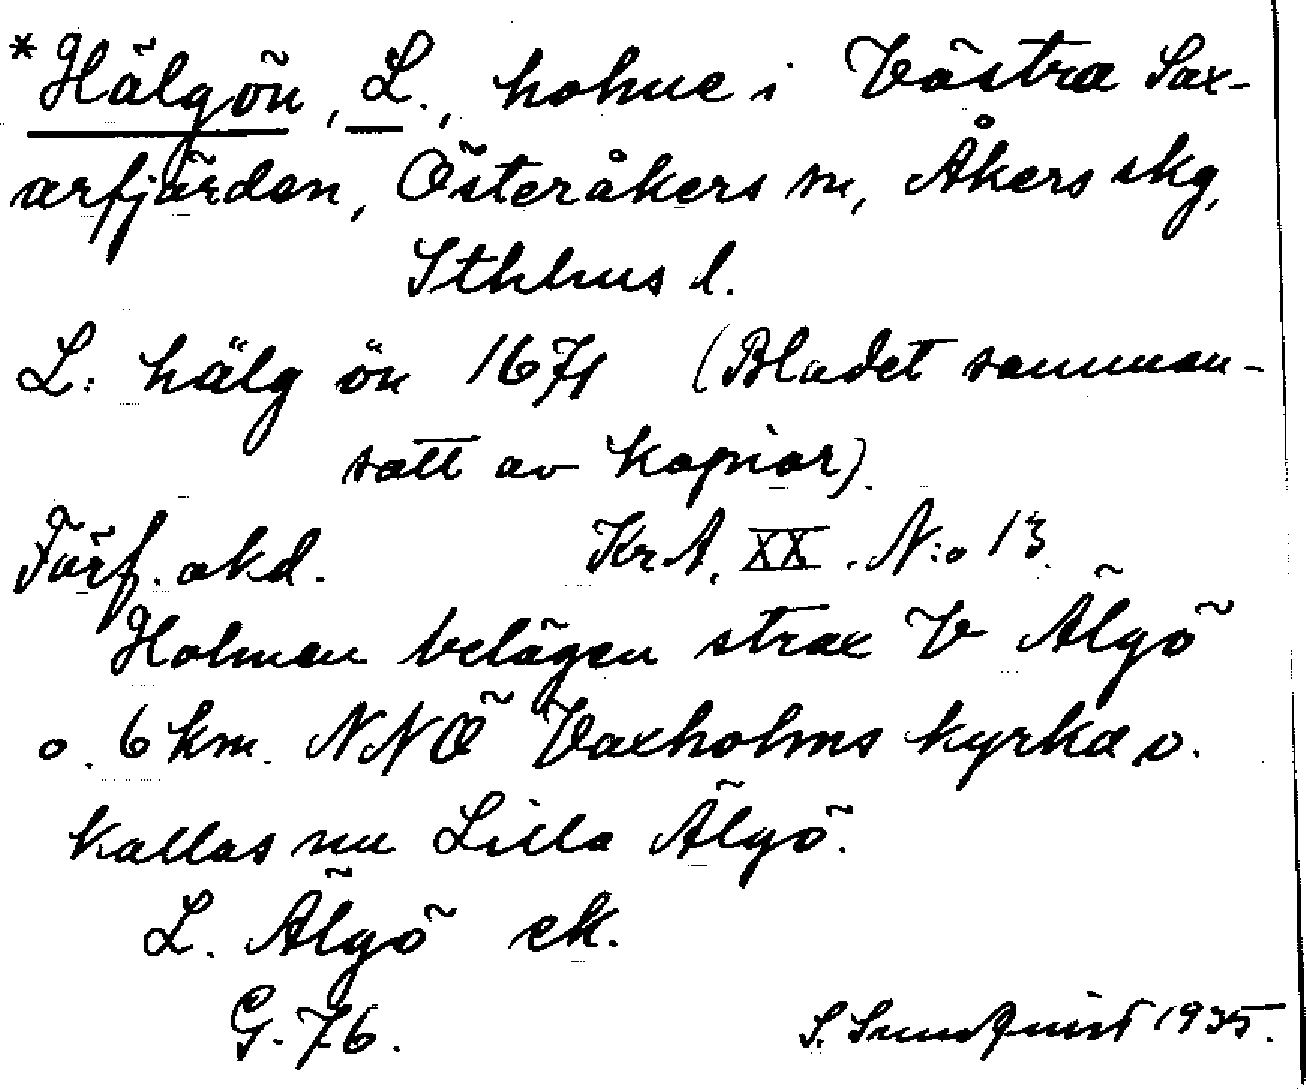 *Hälgön, L., holme i Västra Sax-
arfjärden, Österåkers sn, Åkers skg,
Sthlms l.
L: hälg ön 1671 (Bladet samman-
satt av kopior).
Förf. okd. KrA, XX. N:o 13.
Holmen belägen strax V Älgö
o. 6 km. NNÖ Vaxholms kyrka o.
kallas nu Lilla Älgö.
L. Älgö ek.
G. 76. S. Sundquist 1935.